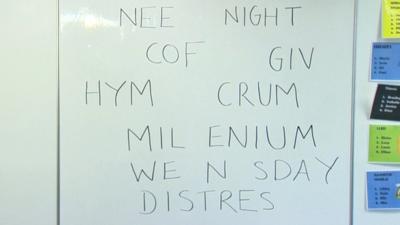 NEE NIGHT
COF GIV
HYM CRUM
MIL ENIUM
WE N SDAY
DISTRES